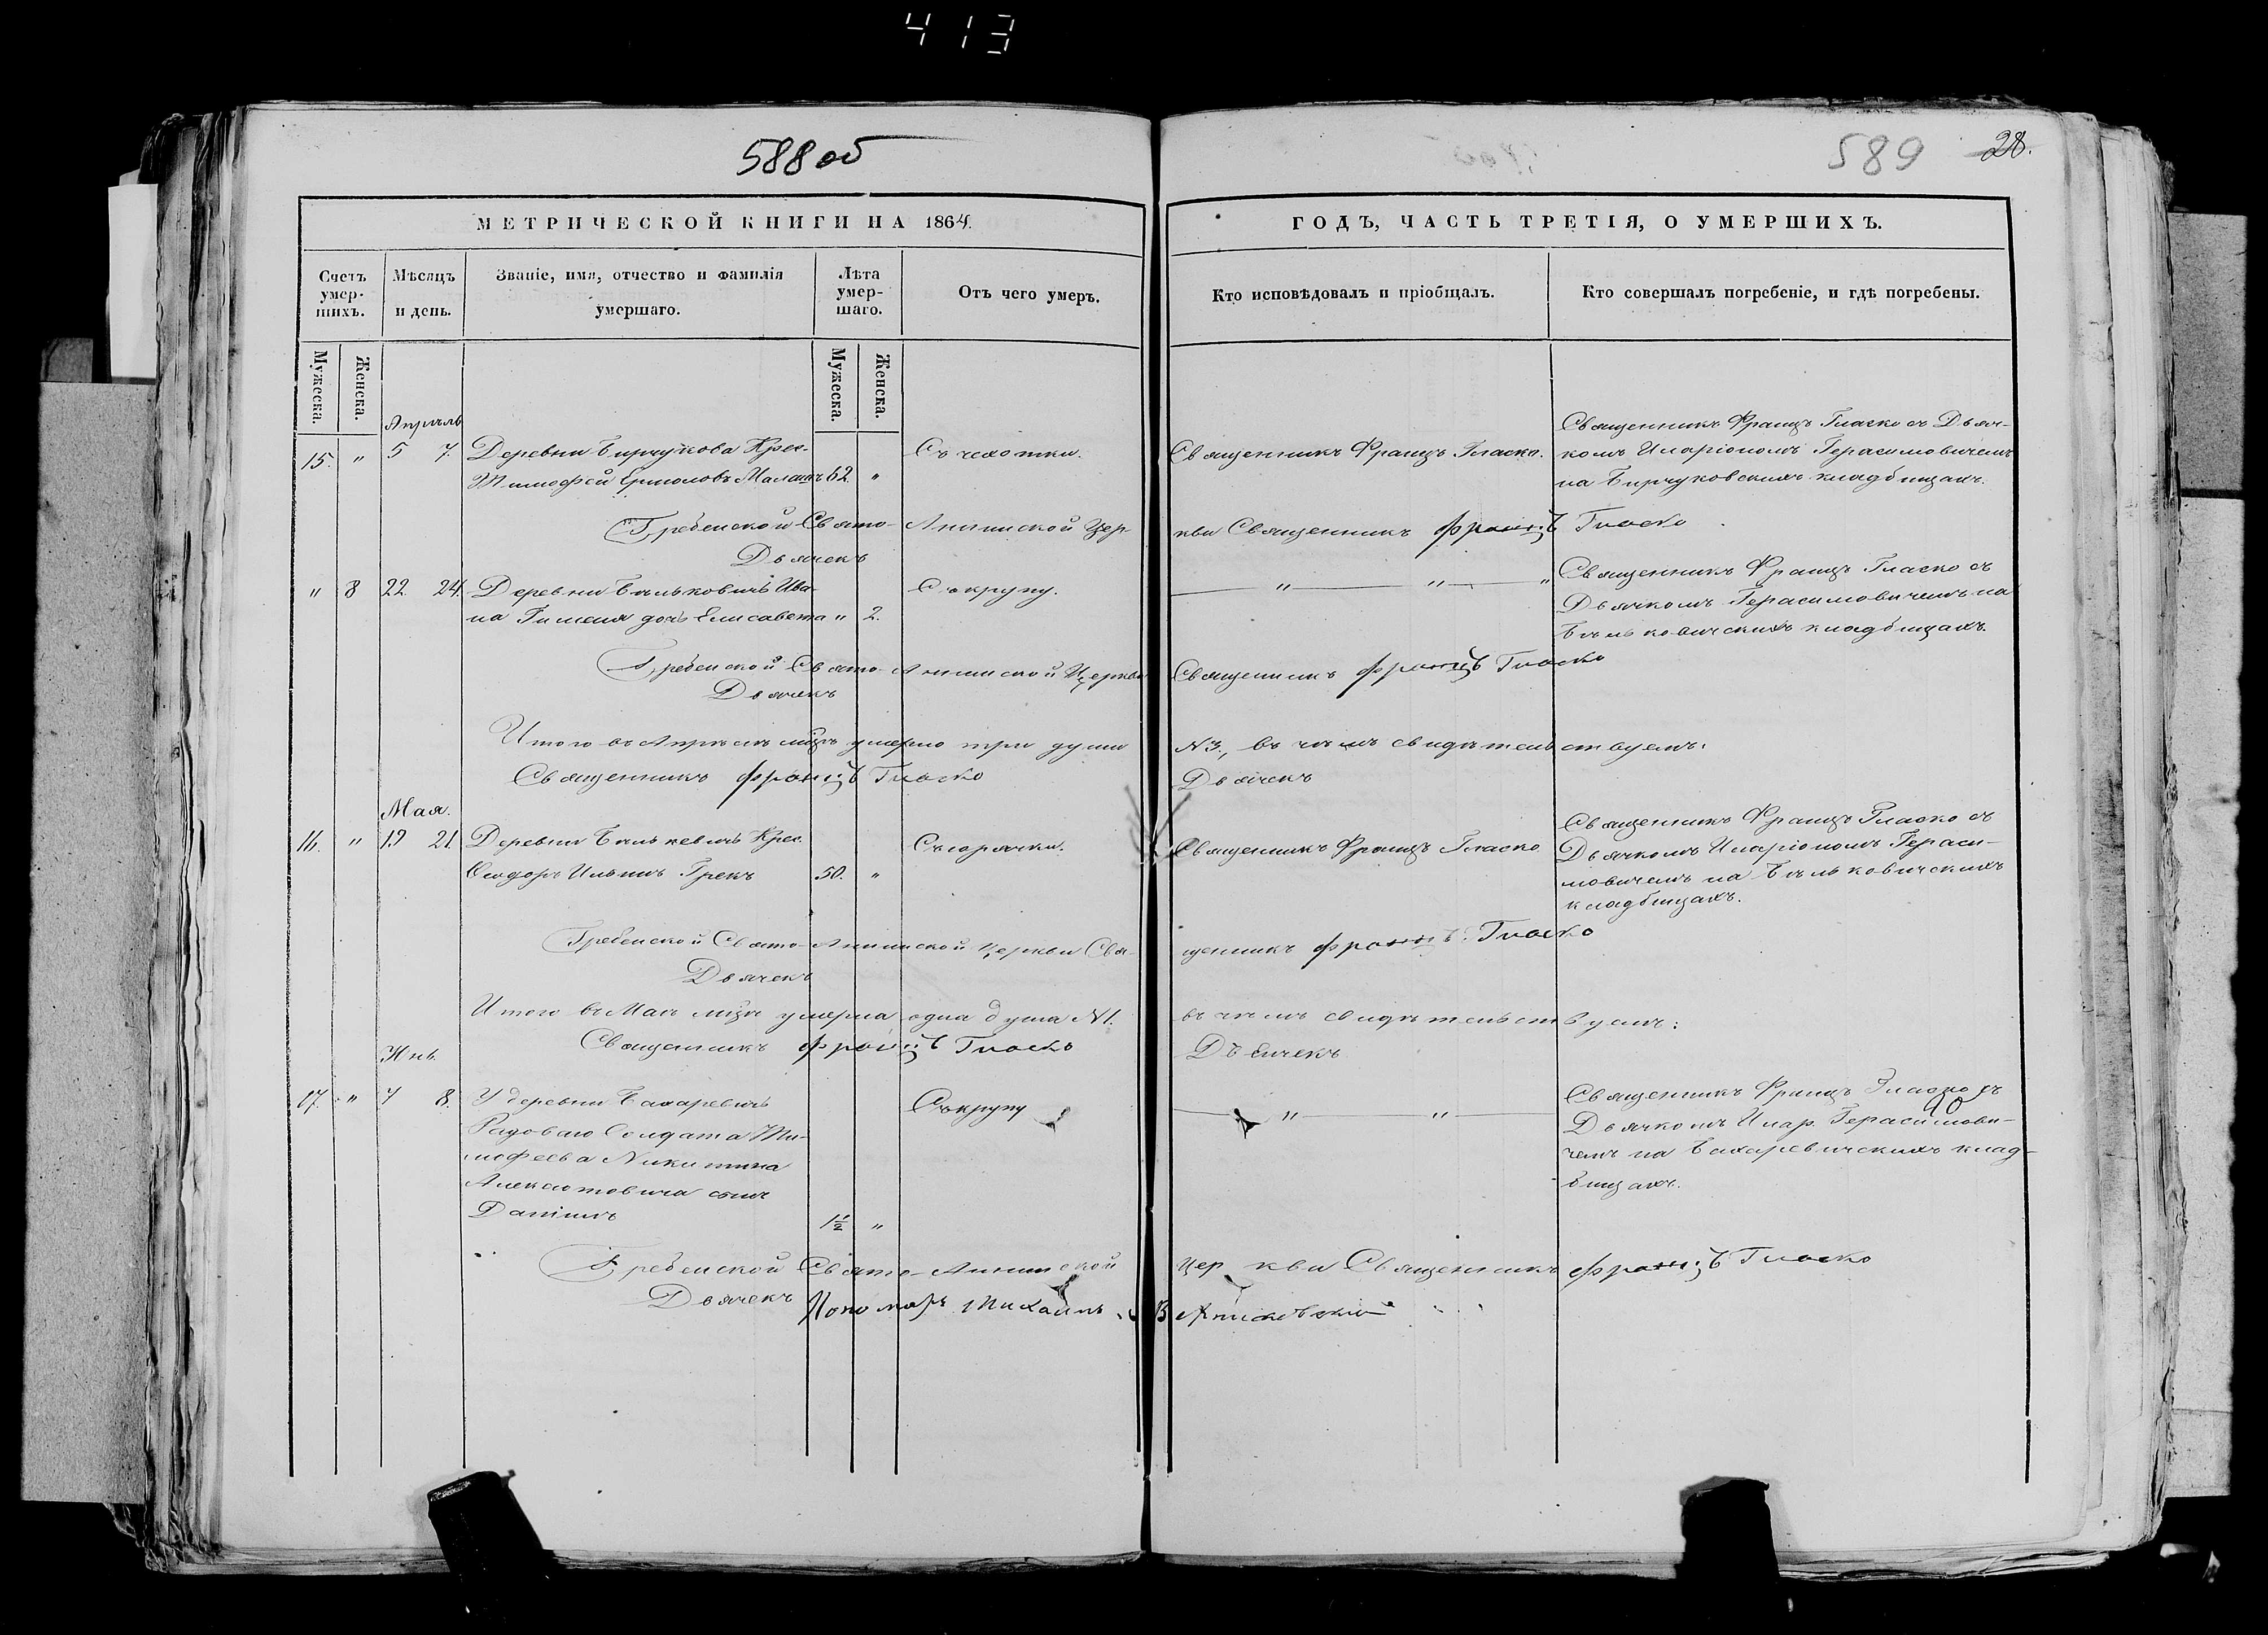 413
588 об
589 28.
МЕТРИЧЕСКОЙ КНИГИ НА 1864. ГОДЪ, ЧАСТЬ ТРЕТІЯ, О УМЕРШИХЪ.
Счетъ умер-шихъ.
Мѣсяцъ и день.
Званіе, имя, отчество и фамилія умершаго.
Лѣта умер-шаго.
Отъ чего умеръ.
Кто исповѣдовалъ и пріобщалъ.
Кто совершалъ погребеніе, и гдѣ погребены.
Мужеска. Женска. Мужеска. Женска.
Апрѣль
15. " 5 7. Деревни Бирчукова Крес.
Тимофей Ермоловъ 62. "
Съ чехотки.
Священникъ Францъ Гласко.
Священникъ Францъ Гласко съ Дьяч-
комъ Иларіономъ Герасимовичемъ
на Бирчуковскихъ кладбищахъ.
Гребенской Свято-Аннинской Цер-
кви Священникъ Францъ Гласко
Дьячекъ
" 8 22. 24. Деревни Бѣльковичъ Ива-
на дочь Елисавета " 2.
Съ крупу.
" "
Священникъ Францъ Гласко съ
Дьячкомъ Герасимовичемъ на
Бѣльковичскихъ кладбищахъ.
Гребенской Свято-Аннинской Церкви Священникъ Францъ Гласко
Дьячекъ
Итого въ Апрѣлѣ мцѣ умерло три души N3., въ чемъ свидѣтельствуемъ:
Священникъ Францъ Гласко Дьячекъ
Мая.
16. " 19 21. Деревни Бѣлькевичъ Крес.
Ѳеодоръ Ильинъ Грекъ 50. "
Съ горячки.
Священникъ Францъ Гласко
Священникъ Францъ Гласко съ
Дьячкомъ Иларіономъ Гераси-
мовичемъ на Бѣльковичскихъ
кладбищахъ.
Гребенской Свято-Аннинской Церкви Свя-
щенникъ Францъ Гласко
Дьячекъ
Итого въ Маѣ мцѣ умерла одна душа N1. въ чемъ свидѣтельствуемъ:
Священникъ Францъ Гласко Дьячекъ
Юнь.
17. " 7 8. У деревни Бахаревичъ
Рядоваго Солдата Ти-
мофеева Никитина
сынъ
Даніилъ 1½ "
Съ крупу
" "
Священникъ Францъ Гласко съ
Дьячкомъ Илар. Герасимови-
чемъ на Бахаревичскихъ клад-
бищахъ.
Гребенской Свято-Аннинской Церкви Священникъ Францъ Гласко
Дьячекъ Пономарь Михаилъ